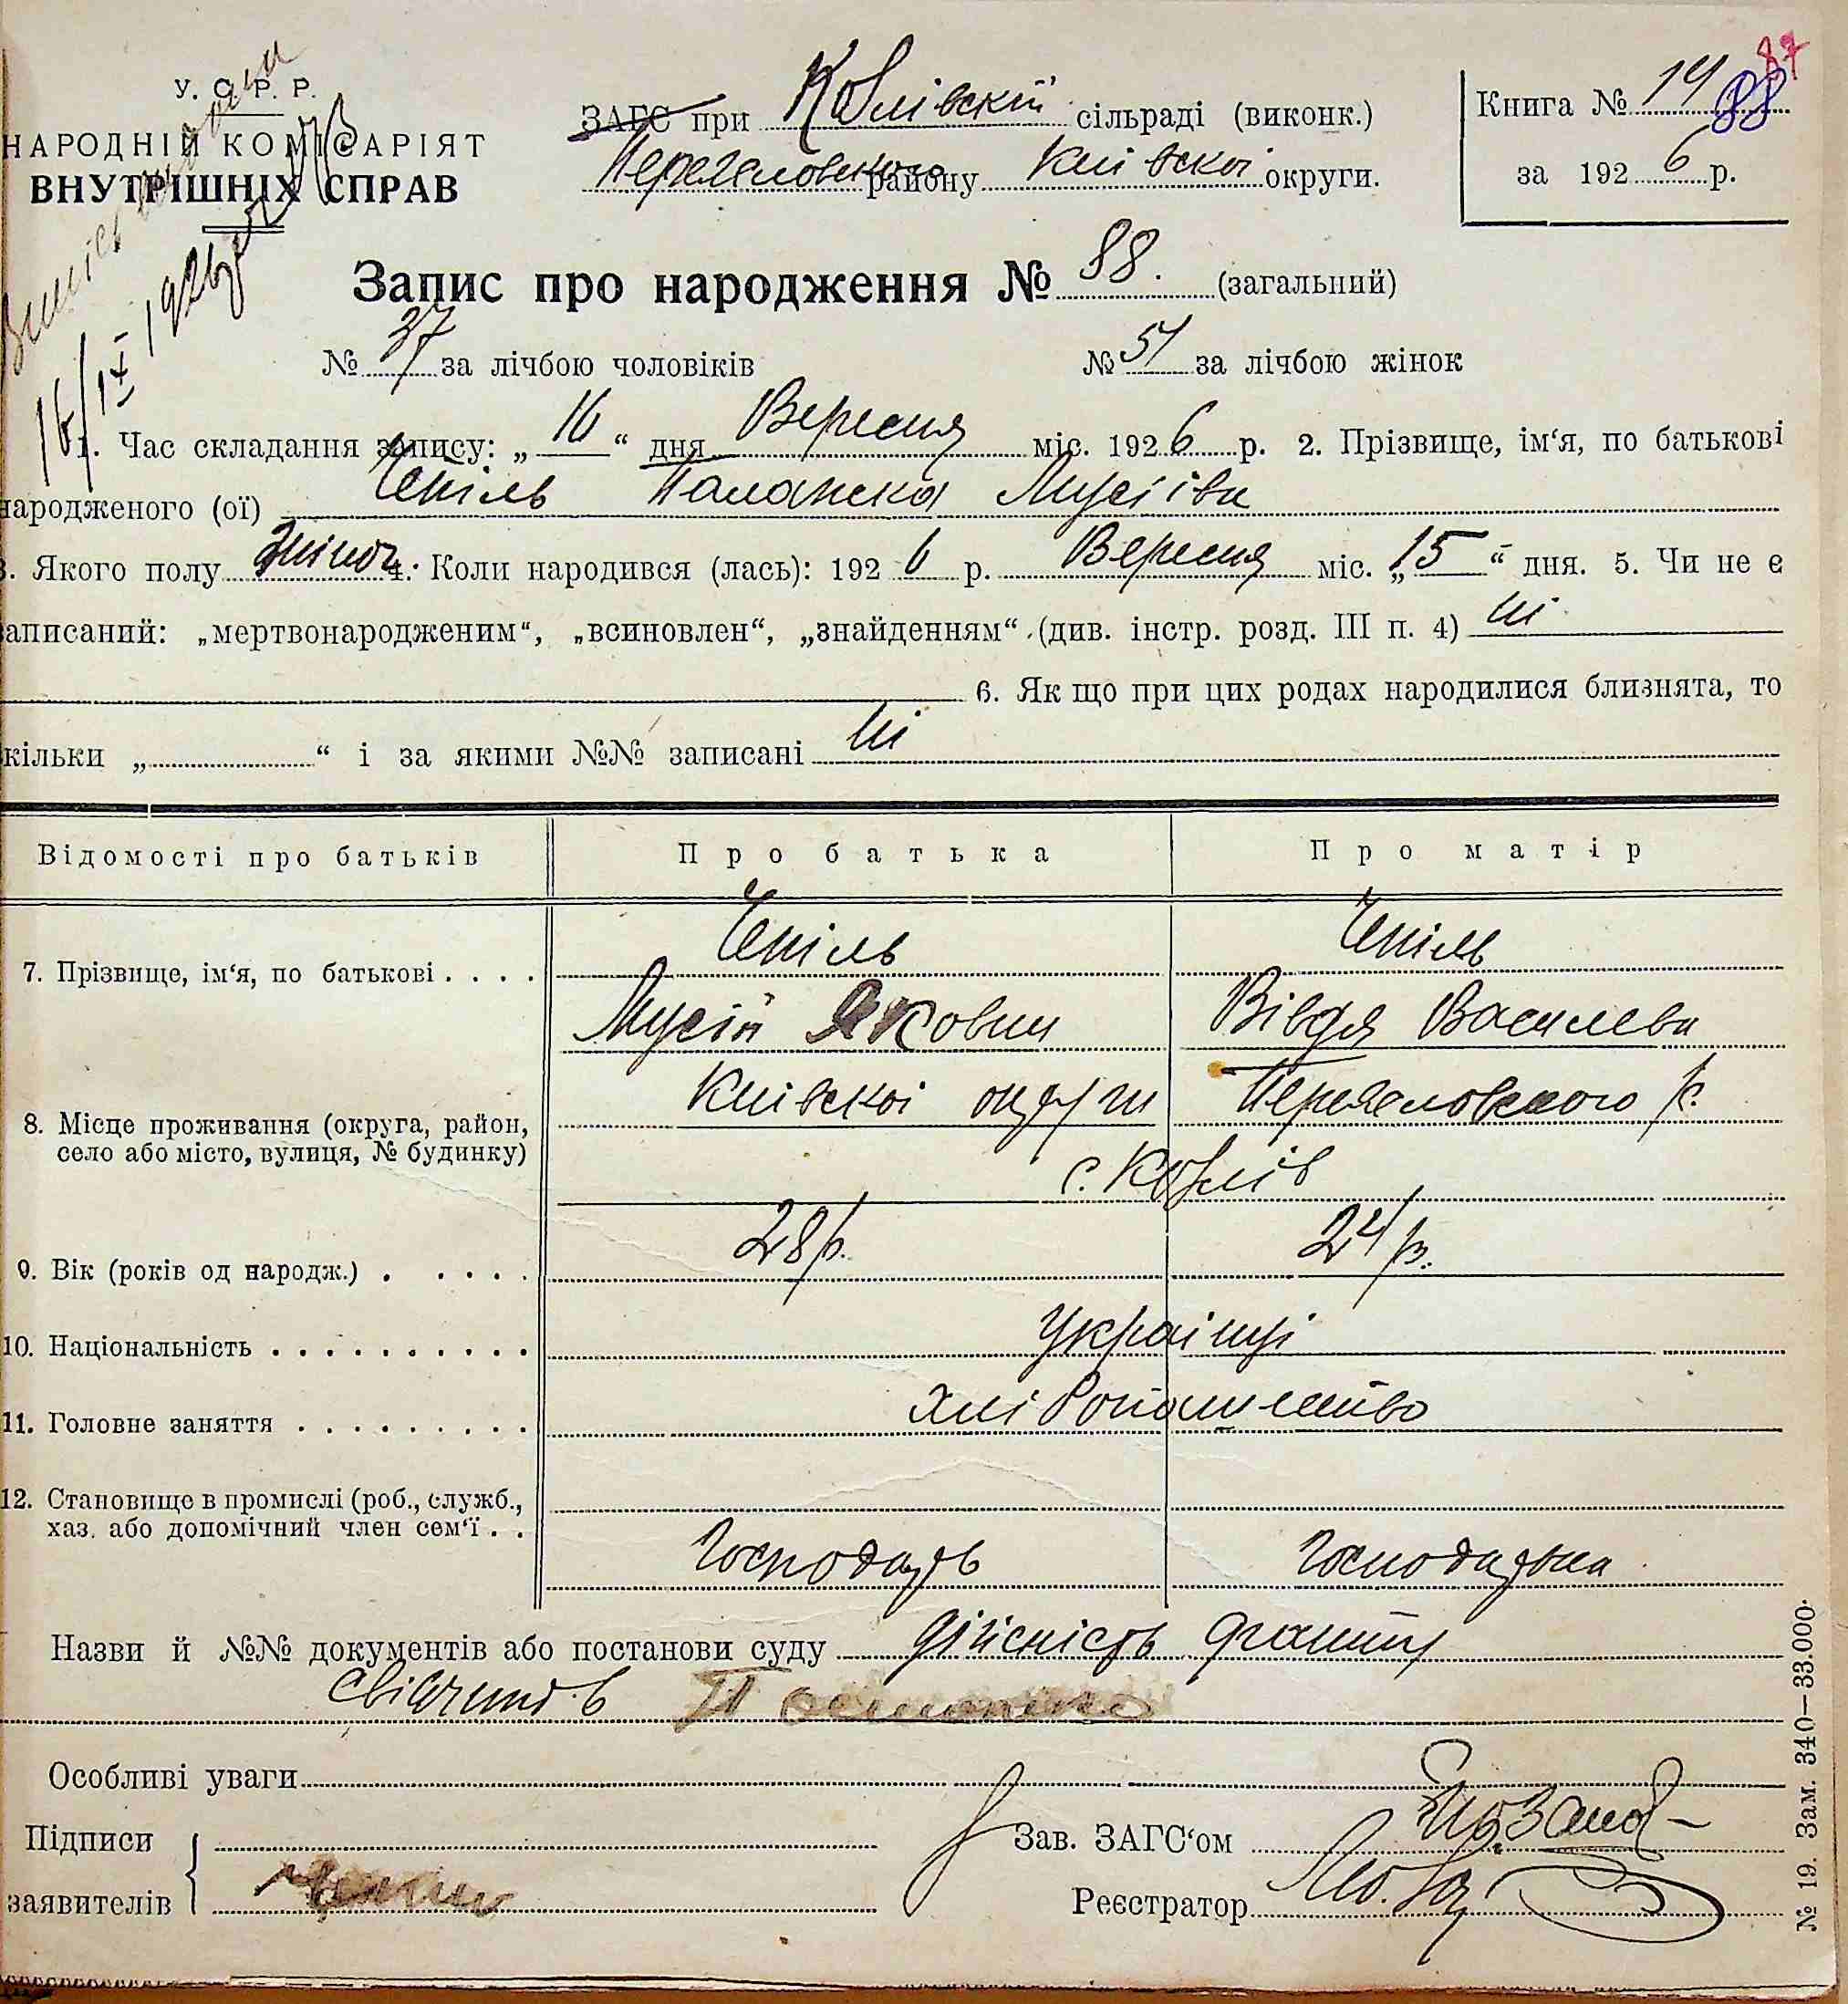 У. С. Р. Р.
НАРОДНІЙ КОМІСАРІЯТ
ВНУТРІШНІХ СПРАВ
ЗАГС при Козлівскій сільраді (виконк.)
Переяславського району Київскої округи.
Книга № 14 88 87
за 1926 р.
16/IX 1926 р
Запис про народження № 88. (загальний)
№ 37 за лічбою чоловіків № 51 за лічбою жінок
1. Час складання запису: „16“ дня Вересня міс. 1926 р. 2. Прізвище, ім‘я, по батькові
народженого (ої) Чепіль Палажка Мусіївн
3. Якого полу жіноч. 4. Коли народився (лась): 1926 р. Вересня міс. „15“ дня. 5. Чи не є
записаний: „мертвонародженим“, „всиновлен“, „знайденням“ (див. інстр. розд. III п. 4) ні
6. Як що при цих родах народилися близнята, то
кільки „ “ і за якими №№ записані ні
Відомості про батьків Про батька Про матір
7. Прізвище, ім‘я, по батькові . . . . Чепіль Чепіль
Мусій Якович Вівдя Василевн
8. Місце проживання (округа, район, село або місто, вулиця, № будинку) Київскої округи Переяславського р.
с. Козлів
9. Вік (років од народж.) . . . . . 28 р. 24 р.
10. Національність . . . . . . . . . . Українці
11. Головне заняття . . . . . . . . . хліборобство
12. Становище в промислі (роб., служб.,
хаз. або допомічний член сем‘ї . . Господарь Господарька
Назви й №№ документів або постанови суду дійсність
Особливі уваги
Підписи
заявителів
Зав. ЗАГС‘ом
Реєстратор
№ 19. Зам. 340—33.000.